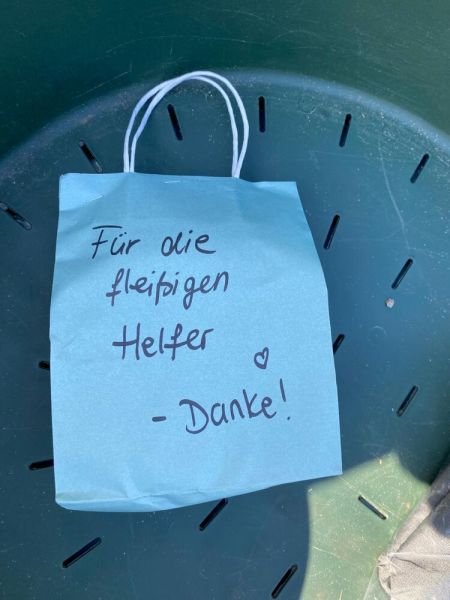 Für die
fleißigen
Helfer
- Danke!